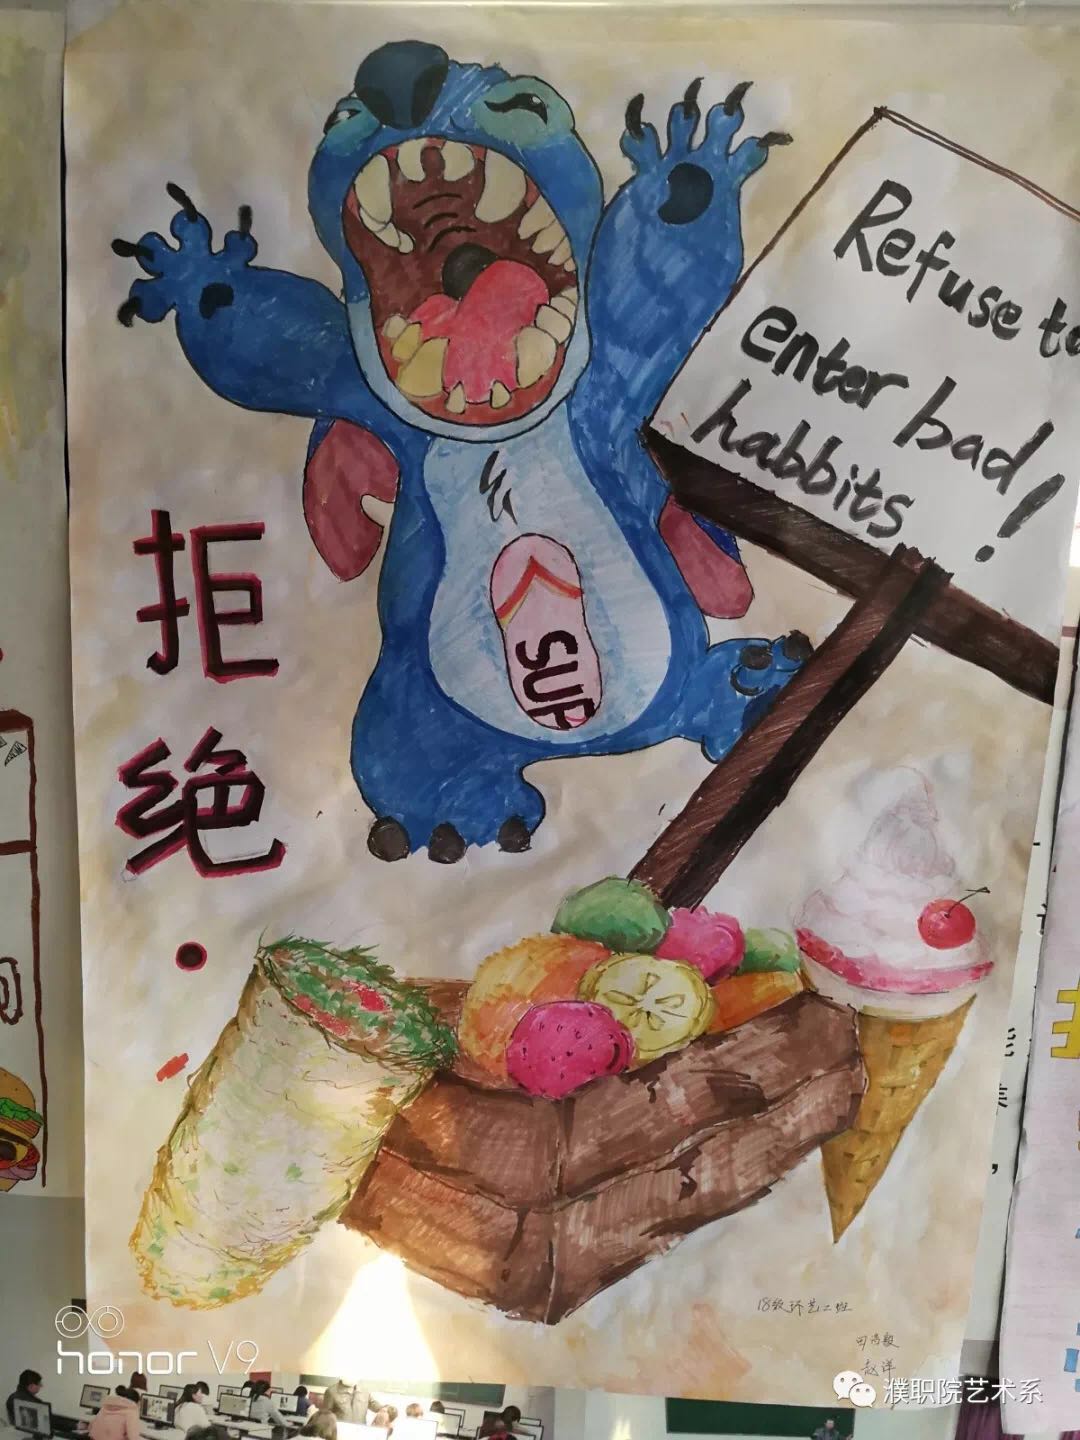 Refuse to
enter bad
habbits!
拒
绝
.
SUP
18级环艺二班
赵洋
honor V9
濮职院艺术系